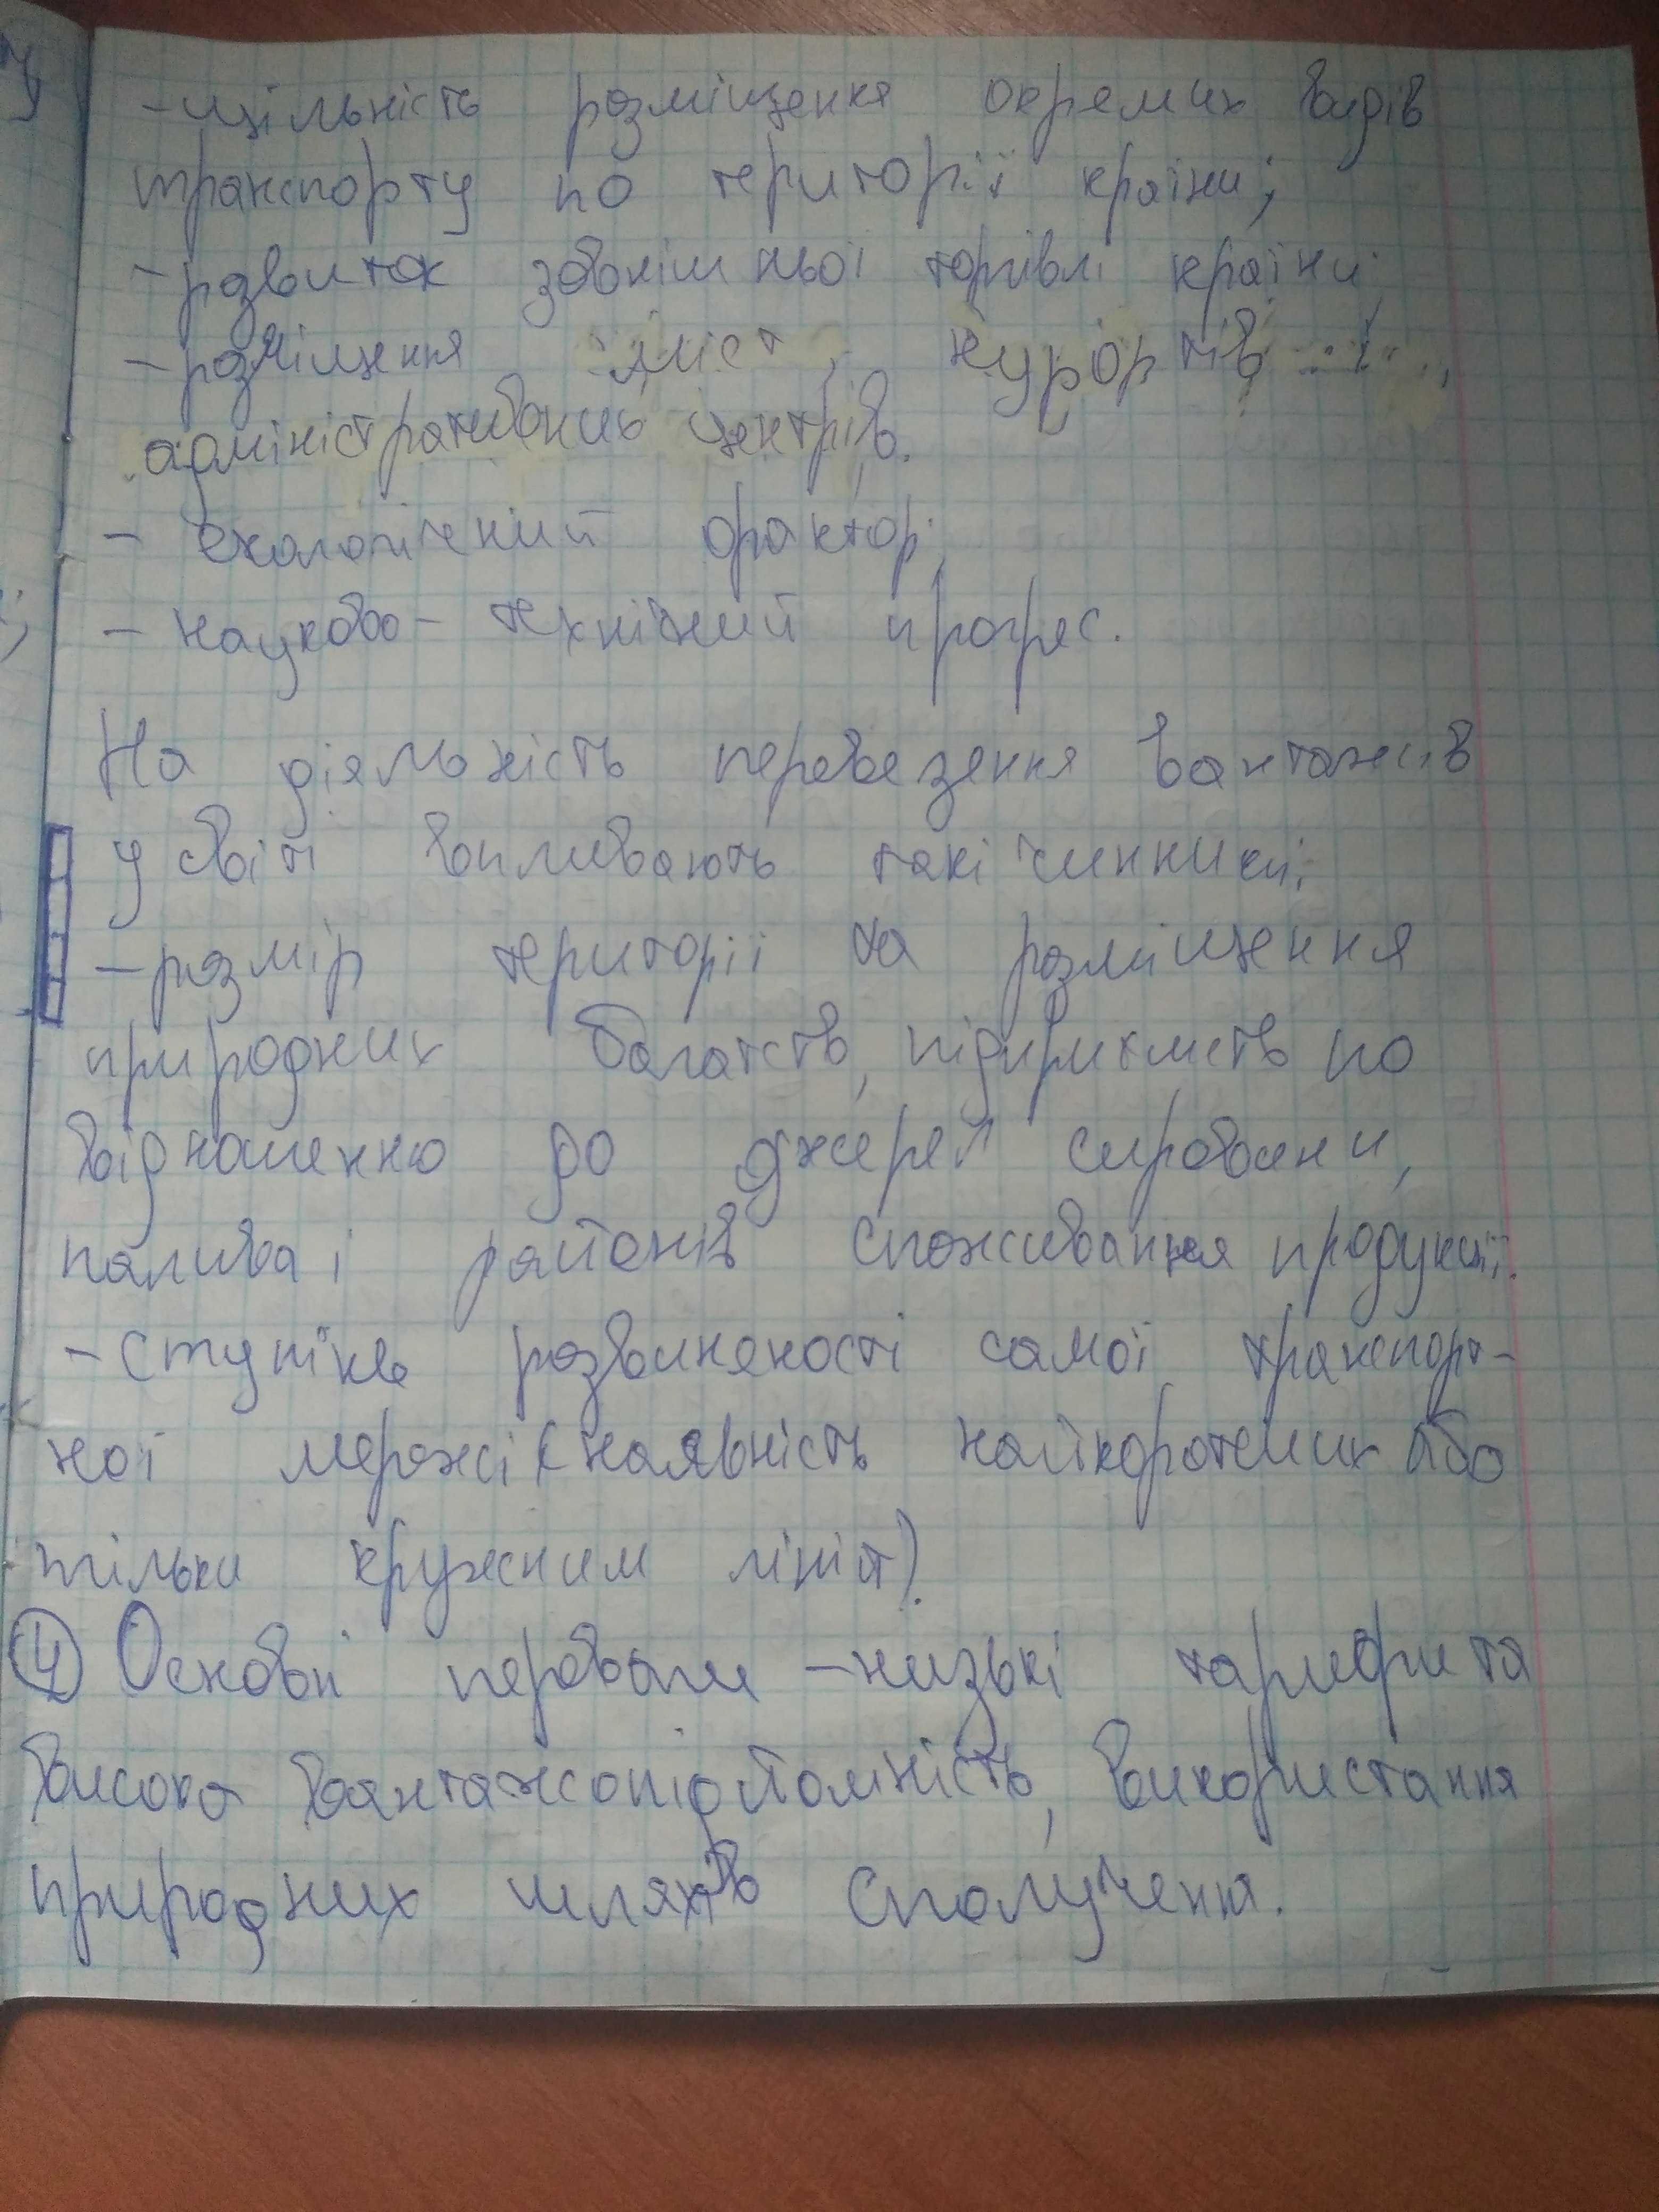 -щільність розміщення окремих видів
транспорту по території країни;
-розвиток зовнішньої торгівлі країни;
-розміщення міст, курортів,
адміністративних центрів.
- екологічний фактор;
- науково-технічний прогрес.
На діяльність перевезення вантажів
у світі впливають такі чинники:
-розмір території та розміщення
природних багатств, підприємств по
відношенню до джерел сировини,
палива і районів споживання продукції;
-ступінь розвиненості самої транспорт-
ної мережі (наявність найкоротших або
тільки кружним ліній).
4 Основні переваги -низькі тарифи та
висока вантажопідйомність, використання
природних шляхів сполучення.